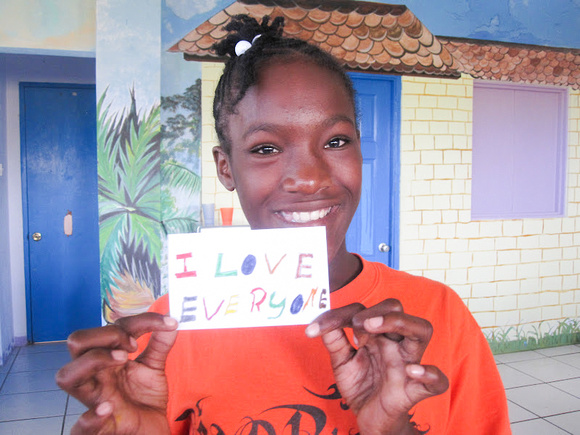 I LOVE
EVERYONE